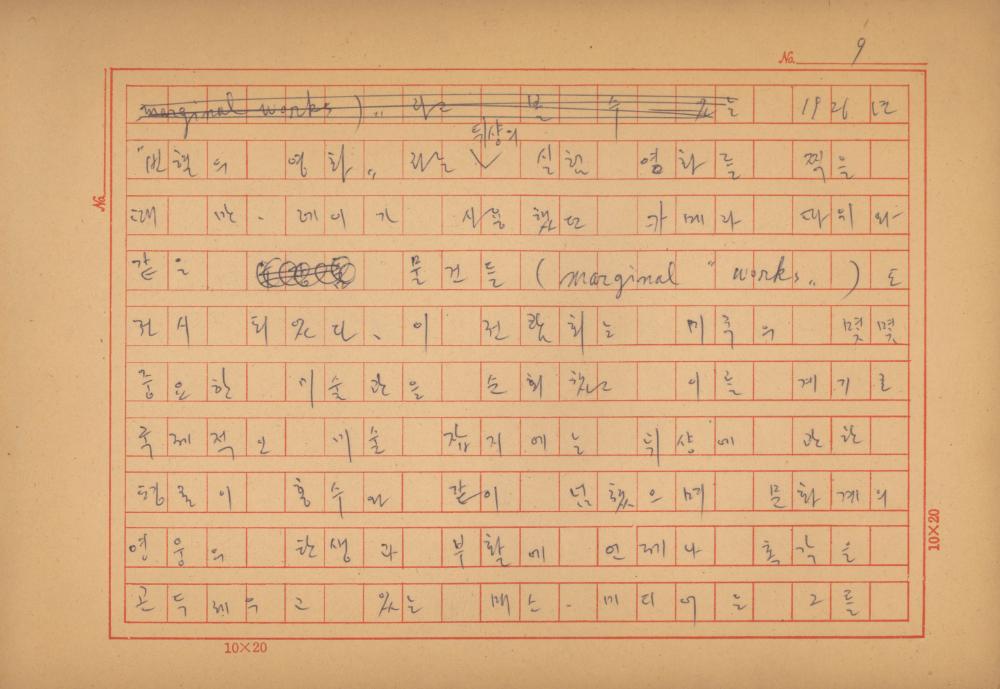 No. 9
marginal works)" 라고 볼 수 있는 1926년
뒤샹의
"빈혈의 영화" 라는 실험 영화를 찍을
때 만·레이가 사용했던 카메라 따위와
같은 물건들 (marginal "works") 도
전시 되었다. 이 전람회는 미국의 몇몇
중요한 미술관을 순회했고 이를 계기로
국제적인 미술 잡지에는 뒤샹에 관한
평론이 홍수와 같이 넘쳤으며 문화계의
영웅의 탄생과 부활에 언제나 촉각을
곤두세우고 있는 매스·미디어는 그를
No.
10×20
10×20